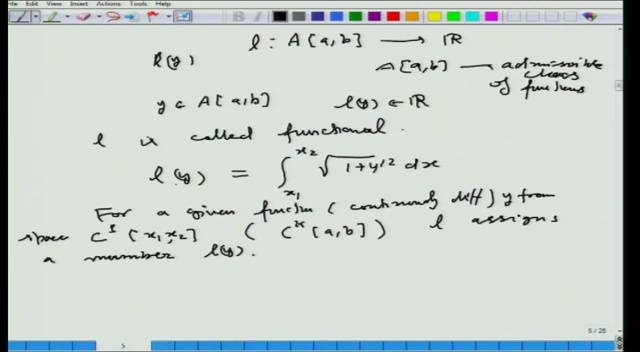 File Edit View Insert Actions Tools Help
l : A[a,b] ⟶ ℝ
l(y) A[a,b] — admissible
class
of functions
y ∈ A[a,b] l(y) ∈ ℝ
l is called functional.
l(y) = ∫_{x_1}^{x_2} √(1+y'^2) dx
For a given function (continuously diff) y from
space C^1[x_1,x_2] ( [a,b]) l assigns
a number l(y).
5 / 25
5